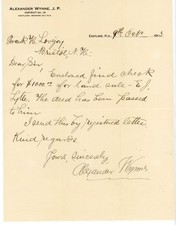 ALEXANDER WYNNE, J. P.
9th Oct
Frank W. Lovejoy
Bristol, N. H.
Dear Sir, Enclosed find check
for $1000.00 for land sale - E. J.
Lytle. The deed has been passed
to him
I send this by registered letter
Kind regards
Yours Sincerely
Alexander Wynne